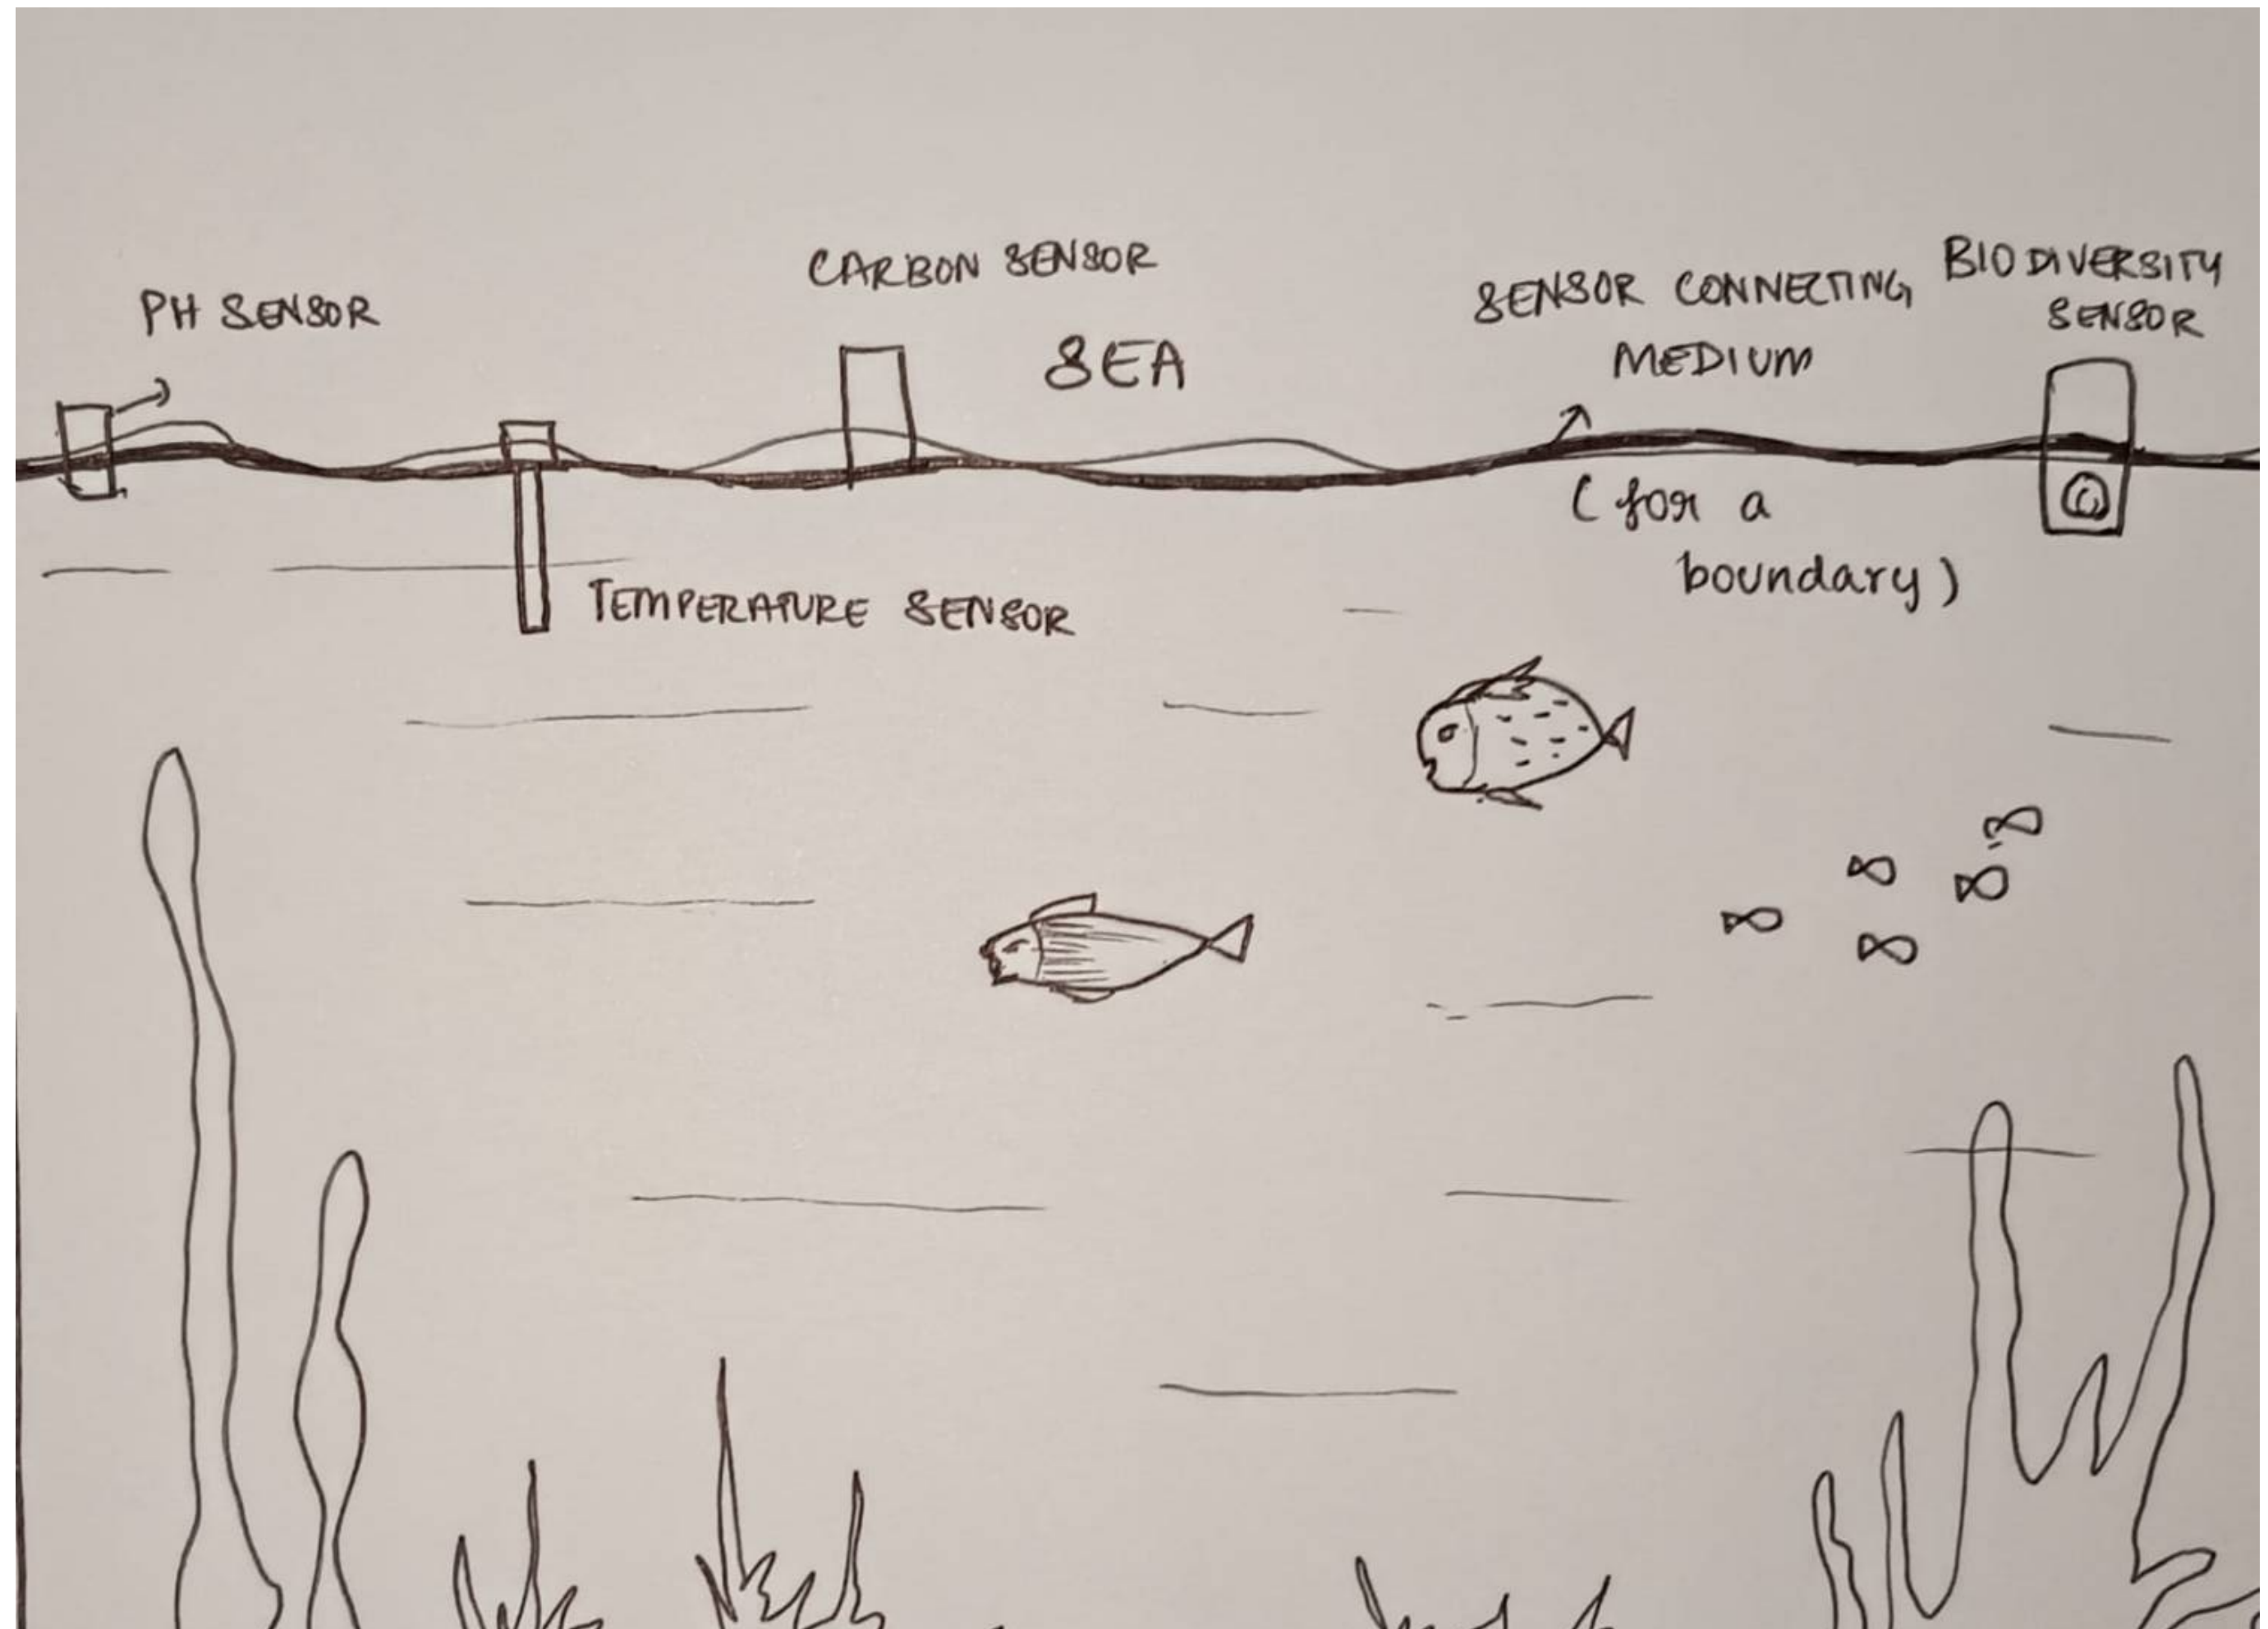 PH SENSOR
CARBON SENSOR
SEA
SENSOR CONNECTING
MEDIUM
(for a
boundary)
BIODIVERSITY
SENSOR
TEMPERATURE SENSOR